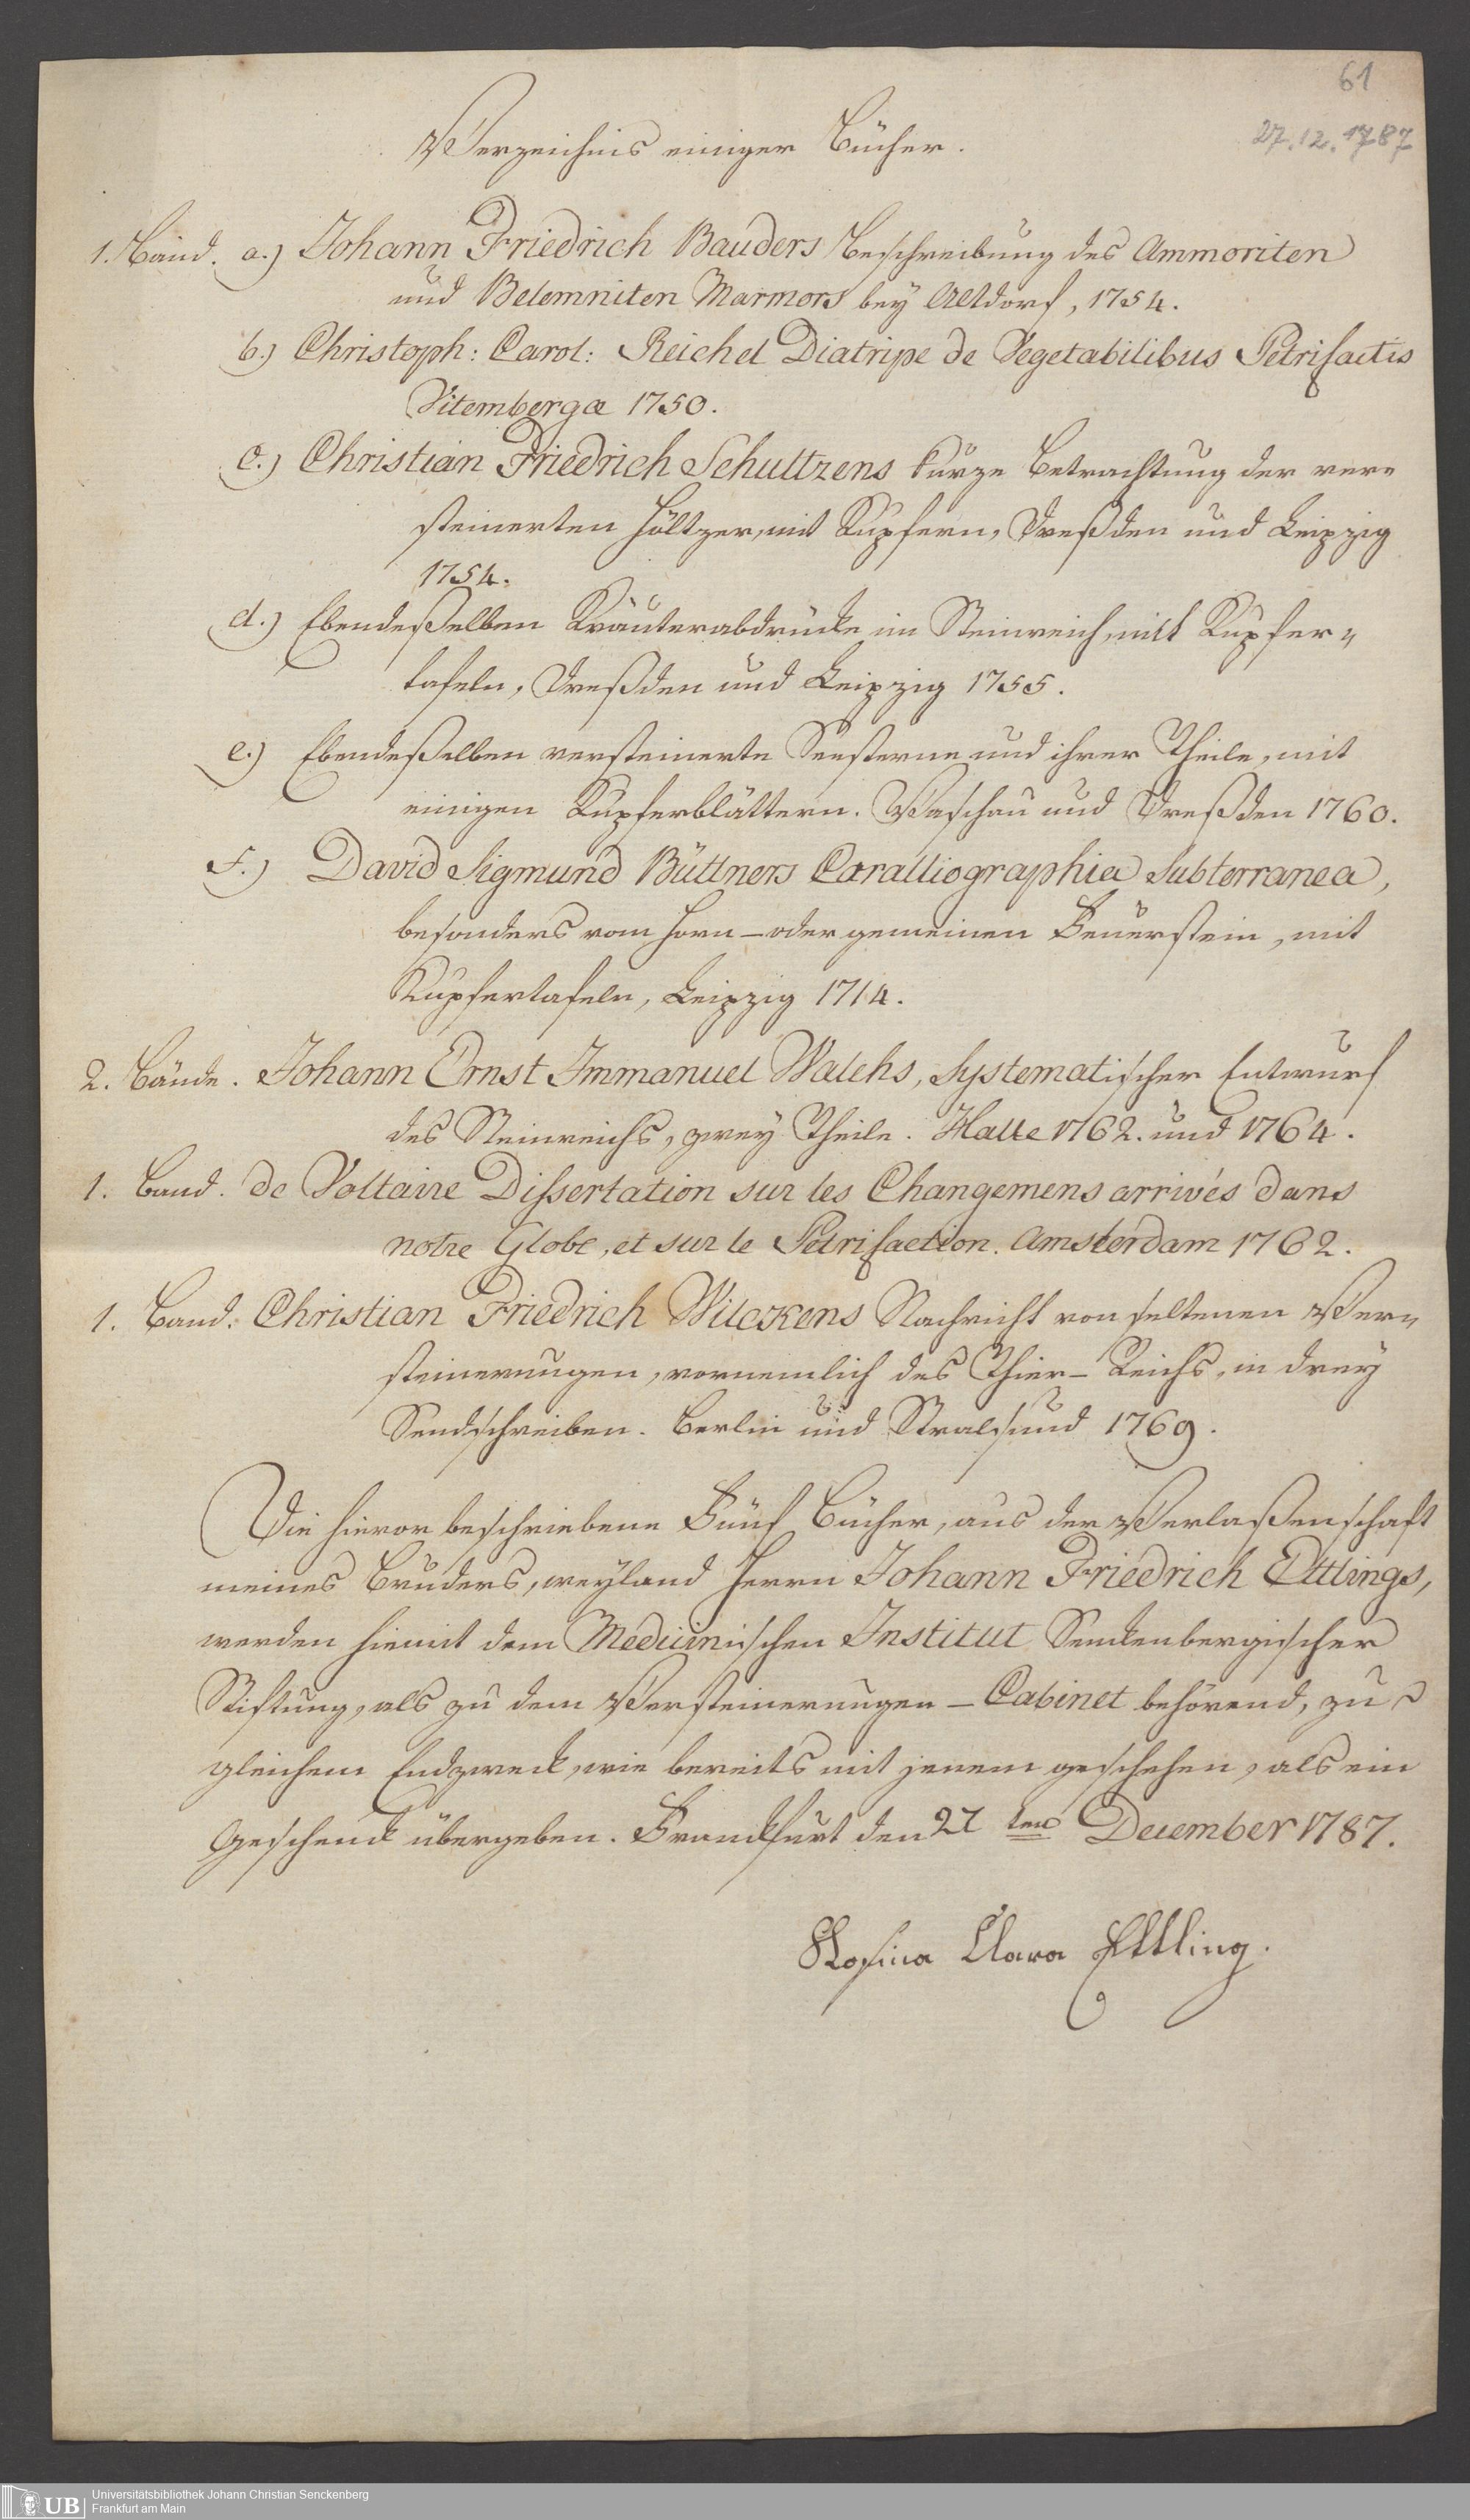 61
27.12.1787
Verzeichnis einiger Bücher.
1. Band. a.) Johann Friedrich Bauders Beschreibung des Ammoniten
und Belemniten Marmors bey Altdorf, 1754.
b.) Christoph: Carol: Reichel Diatripe de Vegetabilibus Petrifactis
Vitembergæ 1750.
c.) Christian Friedrich Schultzens kurze Betrachtung der ver=
steinerten Höltzer, mit Kupfern, Dreßden und Leipzig
1754.
d.) Ebendeßelben Kräuterabdrücke im Steinreich, mit Kupfer=
tafeln, Dreßden und Leipzig 1755.
e.) Ebendeßelben versteinerte Seesterne und ihrer Theile, mit
einigen Kupferblättern. Waschau und Dreßden 1760.
f.) David Sigmund Büttners Coralliographia Subterranea,
besonders vom Horn- oder gemeinen Feuerstein, mit
Kupfertafeln, Leipzig 1714.
2. Bände. Johann Ernst Immanuel Walchs, Systematischer Entwurf
des Steinreichs, zwey Theile. Halle 1762. und 1764.
1. Band. de Voltaire Dissertation sur les Changemens arrivés dans
notre Globe, et sur le Petrifaction. Amsterdam 1762.
1. Band. Christian Friedrich Wilckens Nachricht von seltenen Ver=
steinerungen, vornemlich des Thier-Reichs, in drey
Sendschreiben. Berlin und Stralsund 1769.
Die hievor beschriebene Fünf Bücher, aus der Verlaßenschaft
meines Bruders, weyland Herrn Johann Friedrich Ettlings,
werden hiemit dem Medicinischen Institut Senckenbergischer
Stiftung, als zu dem Versteinerungen-Cabinet behörend, zu
gleichem Endzweck, wie bereits mit jenem geschehen, als ein
Geschenck übergeben. Franckfurt den 27 ten December 1787.
Rosina Clara Ettling.
UB
Universitätsbibliothek Johann Christian Senckenberg
Frankfurt am Main